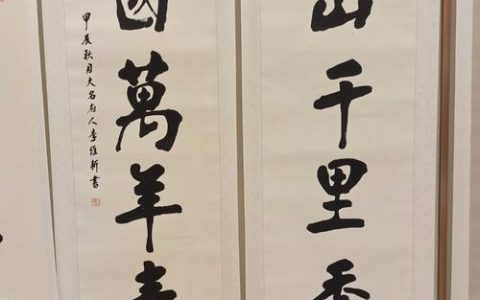 山千里
國萬年春
甲辰秋月大名府人李維新書